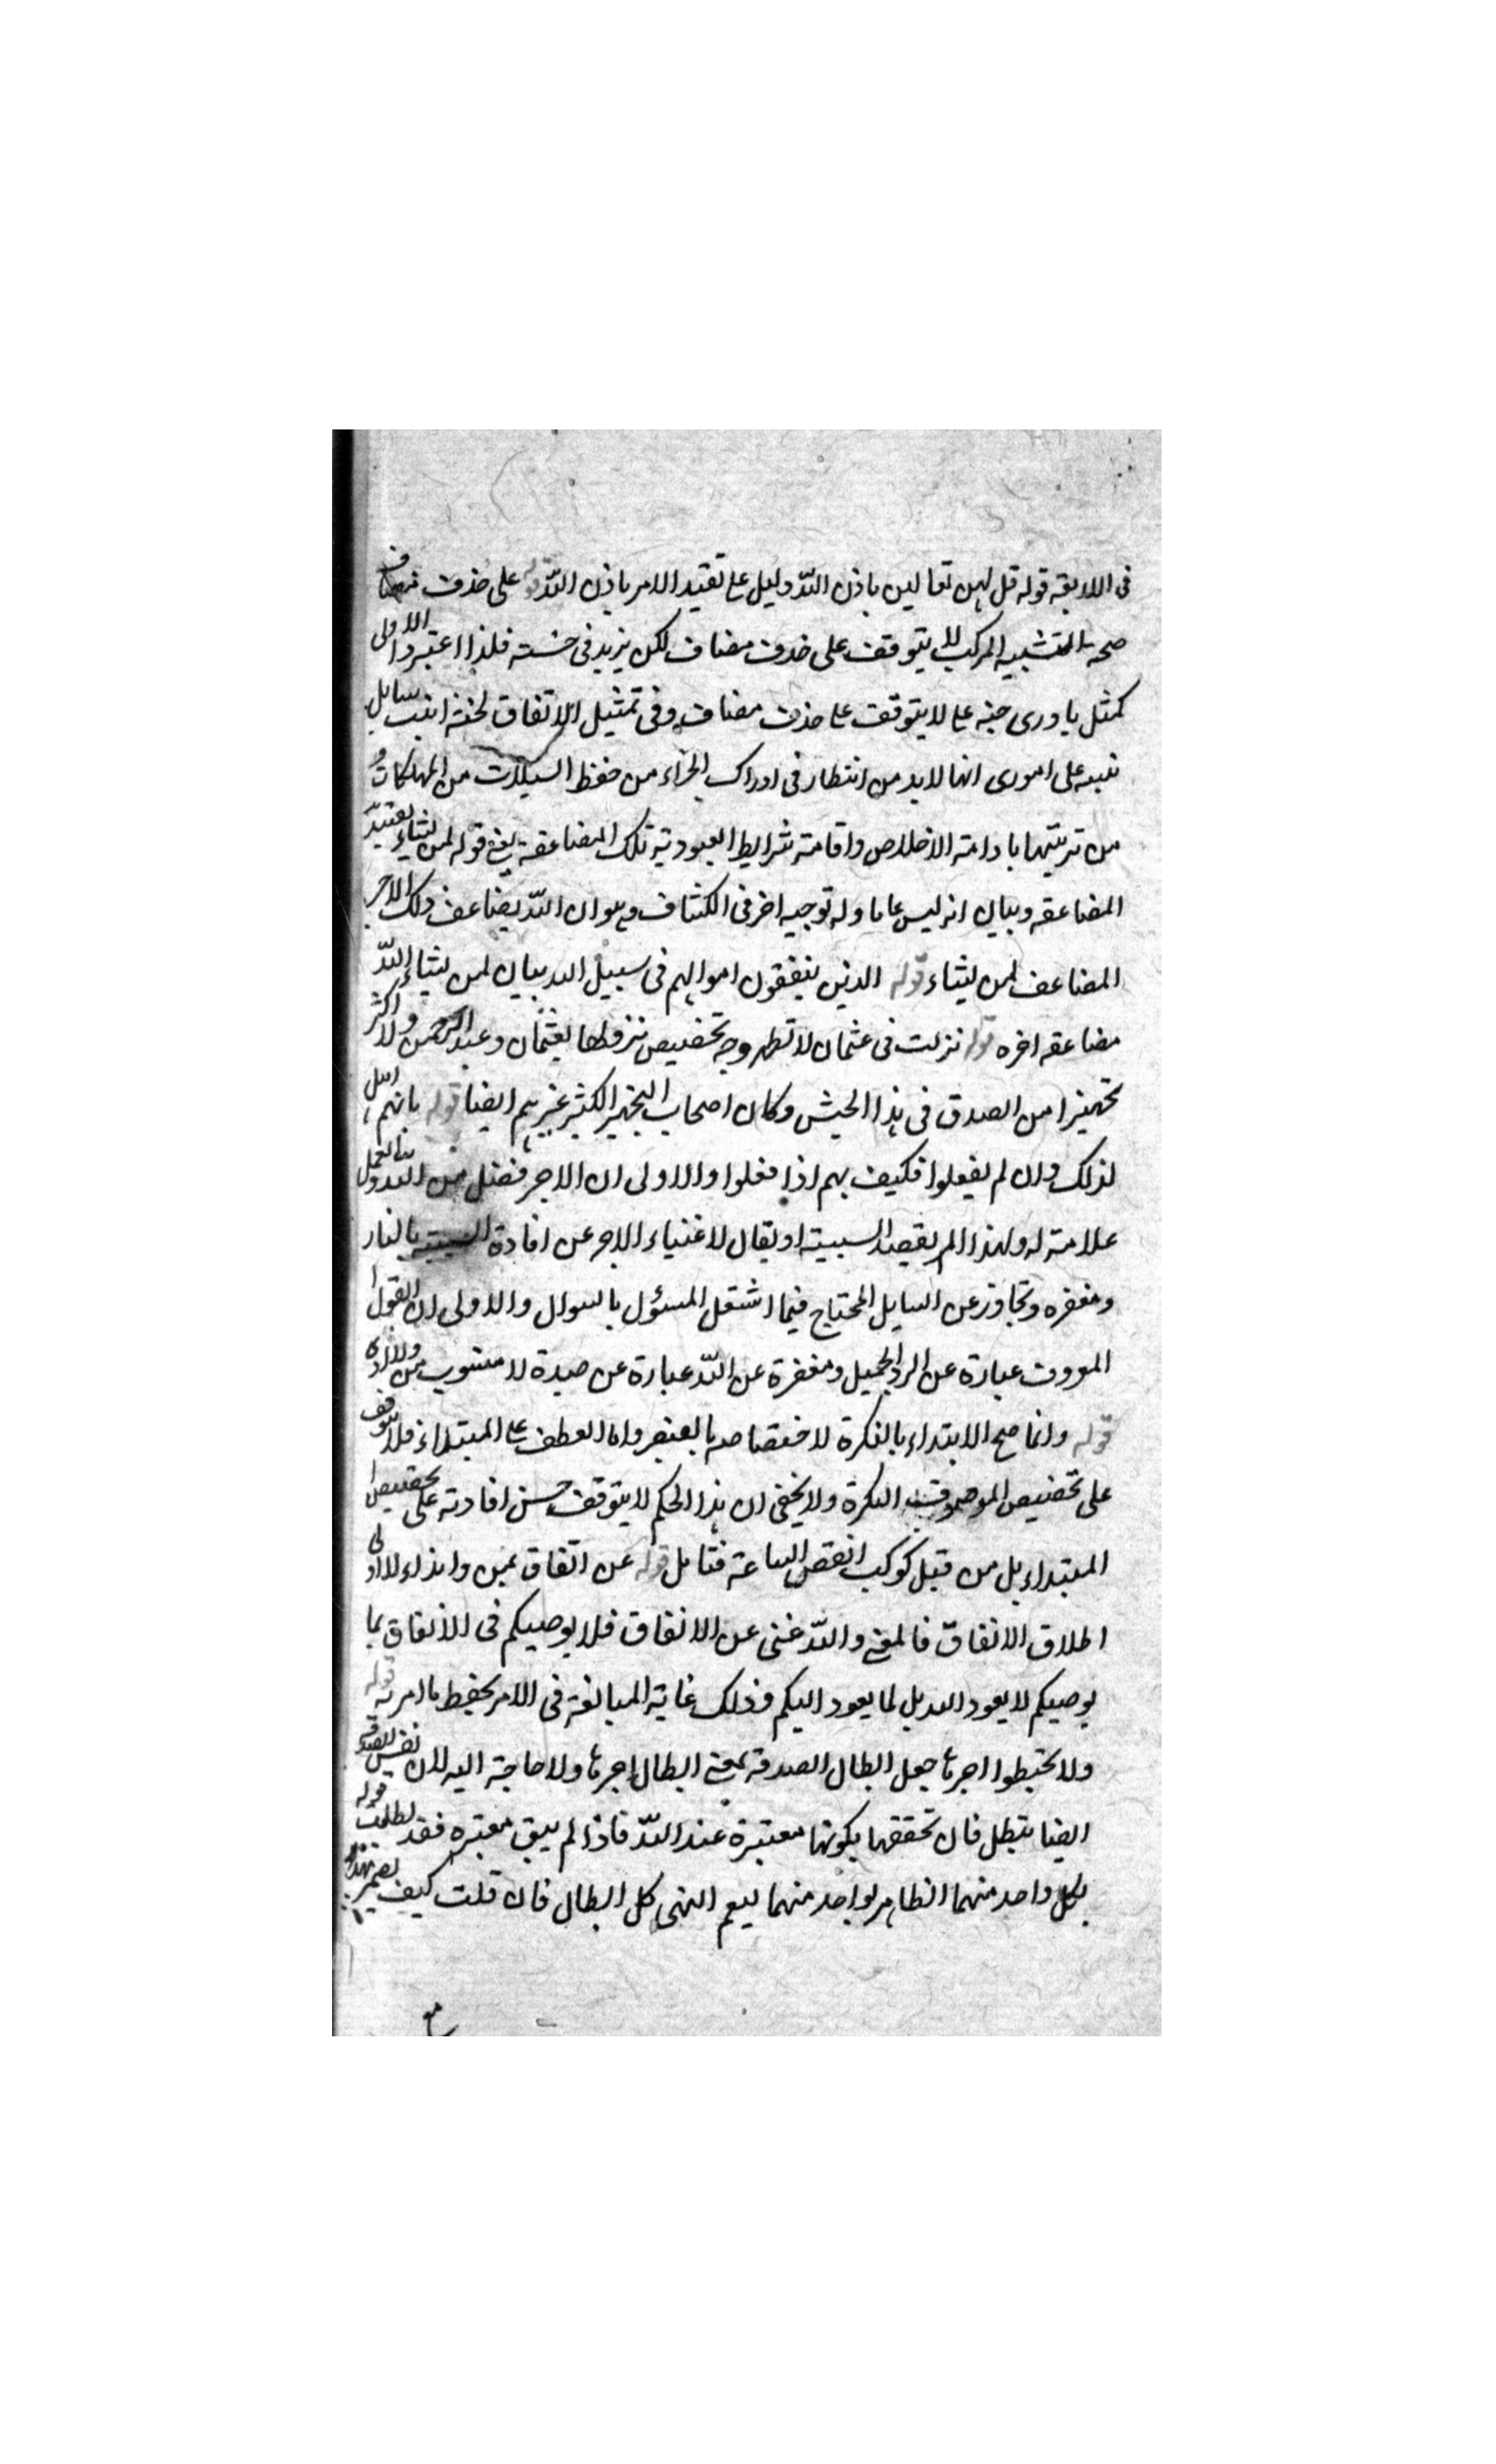 في اللابقه قوله قل لهن تعالين باذن الله دليل على تقييد الامر باذن الله قوله على حذف مضاف
صحة التشبيه المركب لا يتوقف على حذف مضاف لكن يزيد في حسنه فلذا اعتبروا الاولى
كمثل حبه على لا يتوقف على حذف مضاف وفي تمثيل الانفاق لحبة انبتت سنابل
تنبيه على امور انها لا بد من انتظار في ادراك الجزاء من حفظ السنبلات من المهلكات و
من تربيتها بادامة الاخلاص واقامة شرايط العبودية تلك المضاعفة يعني قوله لمن يشاء تقييد
المضاعفه وبيان انه ليس عاما وله توجيه اخر في الكشاف وهو ان الله يضاعف ذلك الاجر
المضاعف لمن يشاء قوله الذين ينفقون اموالهم في سبيل الله بيان لمن يشاء الله
مضاعفه اجره قوله نزلت في عثمان لا تظهر وجه تخصيص نزولها بعثمان وعبد الرحمن ولا اكثر
تجهيزا من الصدق في هذا الجيش وكان اصحاب التجهيز الكثير غيرهم ايضا قوله بانهم اهل
لذلك وان لم يفعلوا فكيف بهم اذا فعلوا والاولى ان الاجر فضل من الله والعمل
علامة له ولهذا لم يقصد السببية او يقال لاغنياء الاجر عن افادة السببية بالفاء
ومغفره وتجاوز عن السايل المحتاج فيما اشتغل المسؤل بالسوال والاولى ان القول
المعروف عبارة عن الرد الجميل ومغفرة عن الله عبارة عن صدقة لا مشوب بمن ولا اذى
قوله وانما صح الابتداء بالنكرة لاختصاصه بالصفه واما العطف على المبتداء فلا يتوقف
على تخصيص الموصوف النكرة ولا يخفى ان هذا الحكم لا يتوقف حسن افادته على تخصيص
المبتداء بل من قبيل كوكب انقض الساعة فتامل قوله عن انفاق بمن وايذاء الاولى
اطلاق الانفاق فالمعنى والله غني عن الانفاق فلا يوصيكم في الانفاق بما
يوصيكم لا يعود اليه بل لما يعود اليكم وذلك غاية المبالغة في الامر بحفظ ما امر به قوله
ولا تحبطوا اجرها جعل ابطال الصدقة بمعنى ابطال اجرها ولا حاجة اليه لان نفس الصدقة
ايضا تبطل فان تحققها بكونها معتبرة عند الله فاذا لم يبق معتبره فقد بطلت قوله
بكل واحد منهما الظاهر بواحد منهما ليعم النهي كل ابطال فان قلت كيف